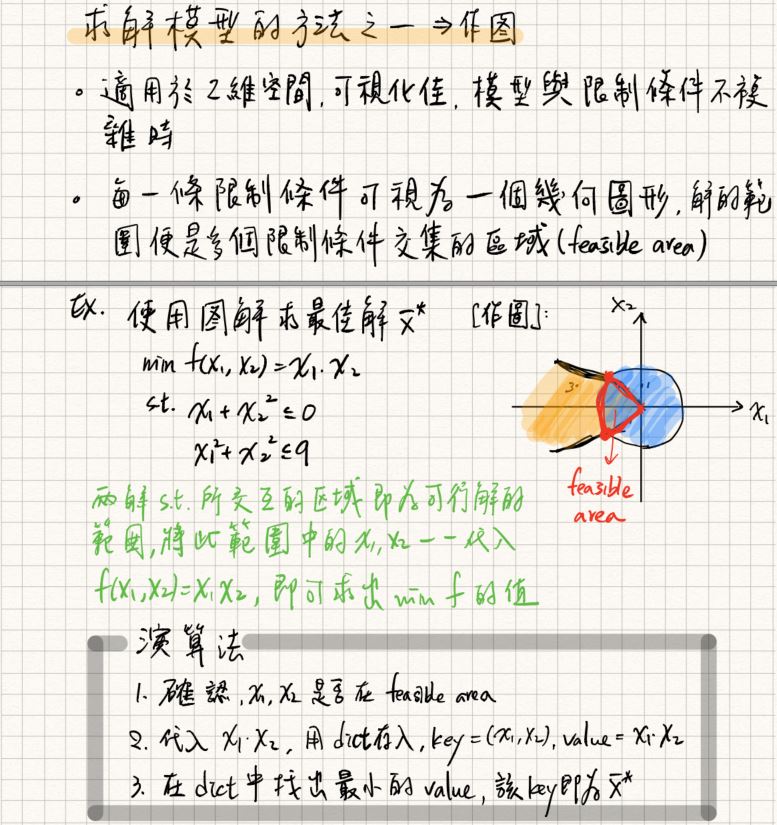 求解模型的方法之一 ⇒ 作图
• 適用於 2 維空間, 可視化佳, 模型與限制條件不複
雜時
• 每一條限制條件可視為一個幾何圖形, 解的範
圍便是多個限制條件交集的區域 (feasible area)
Ex. 使用図解求最佳解 x̄* [作圖]:
min f(x₁, x₂) = x₁·x₂
s.t. x₁ + x₂² ≤ 0
x₁² + x₂² ≤ 9
x₂
x₁
feasible
area
兩解 s.t. 所交互的区域即为可行解的
範囲, 將此範圍中的 x₁, x₂ 一一代入
f(x₁, x₂) = x₁x₂, 即可求出 min f 的值
演算法
1. 確認, x₁, x₂ 是否在 feasible area
2. 代入 x₁·x₂, 用 dict 存入, key = (x₁, x₂), value = x₁·x₂
3. 在 dict 中找出最小的 value, 該 key 即为 x̄*